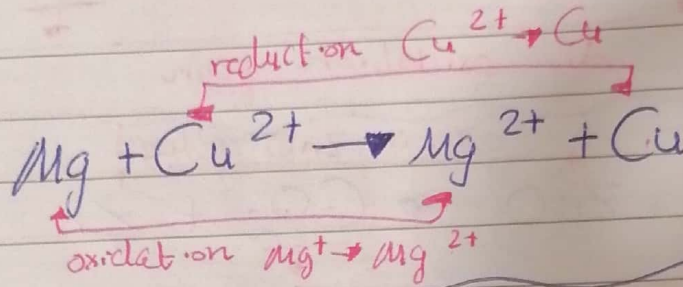 reduction Cu 2+ → Cu
Mg + Cu 2+ → Mg 2+ + Cu
oxidation Mg+ → Mg 2+